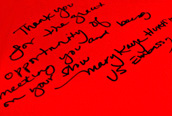 Thank you
for the great
opportunity of
meeting you and being
on your show
Mary Kaye
US